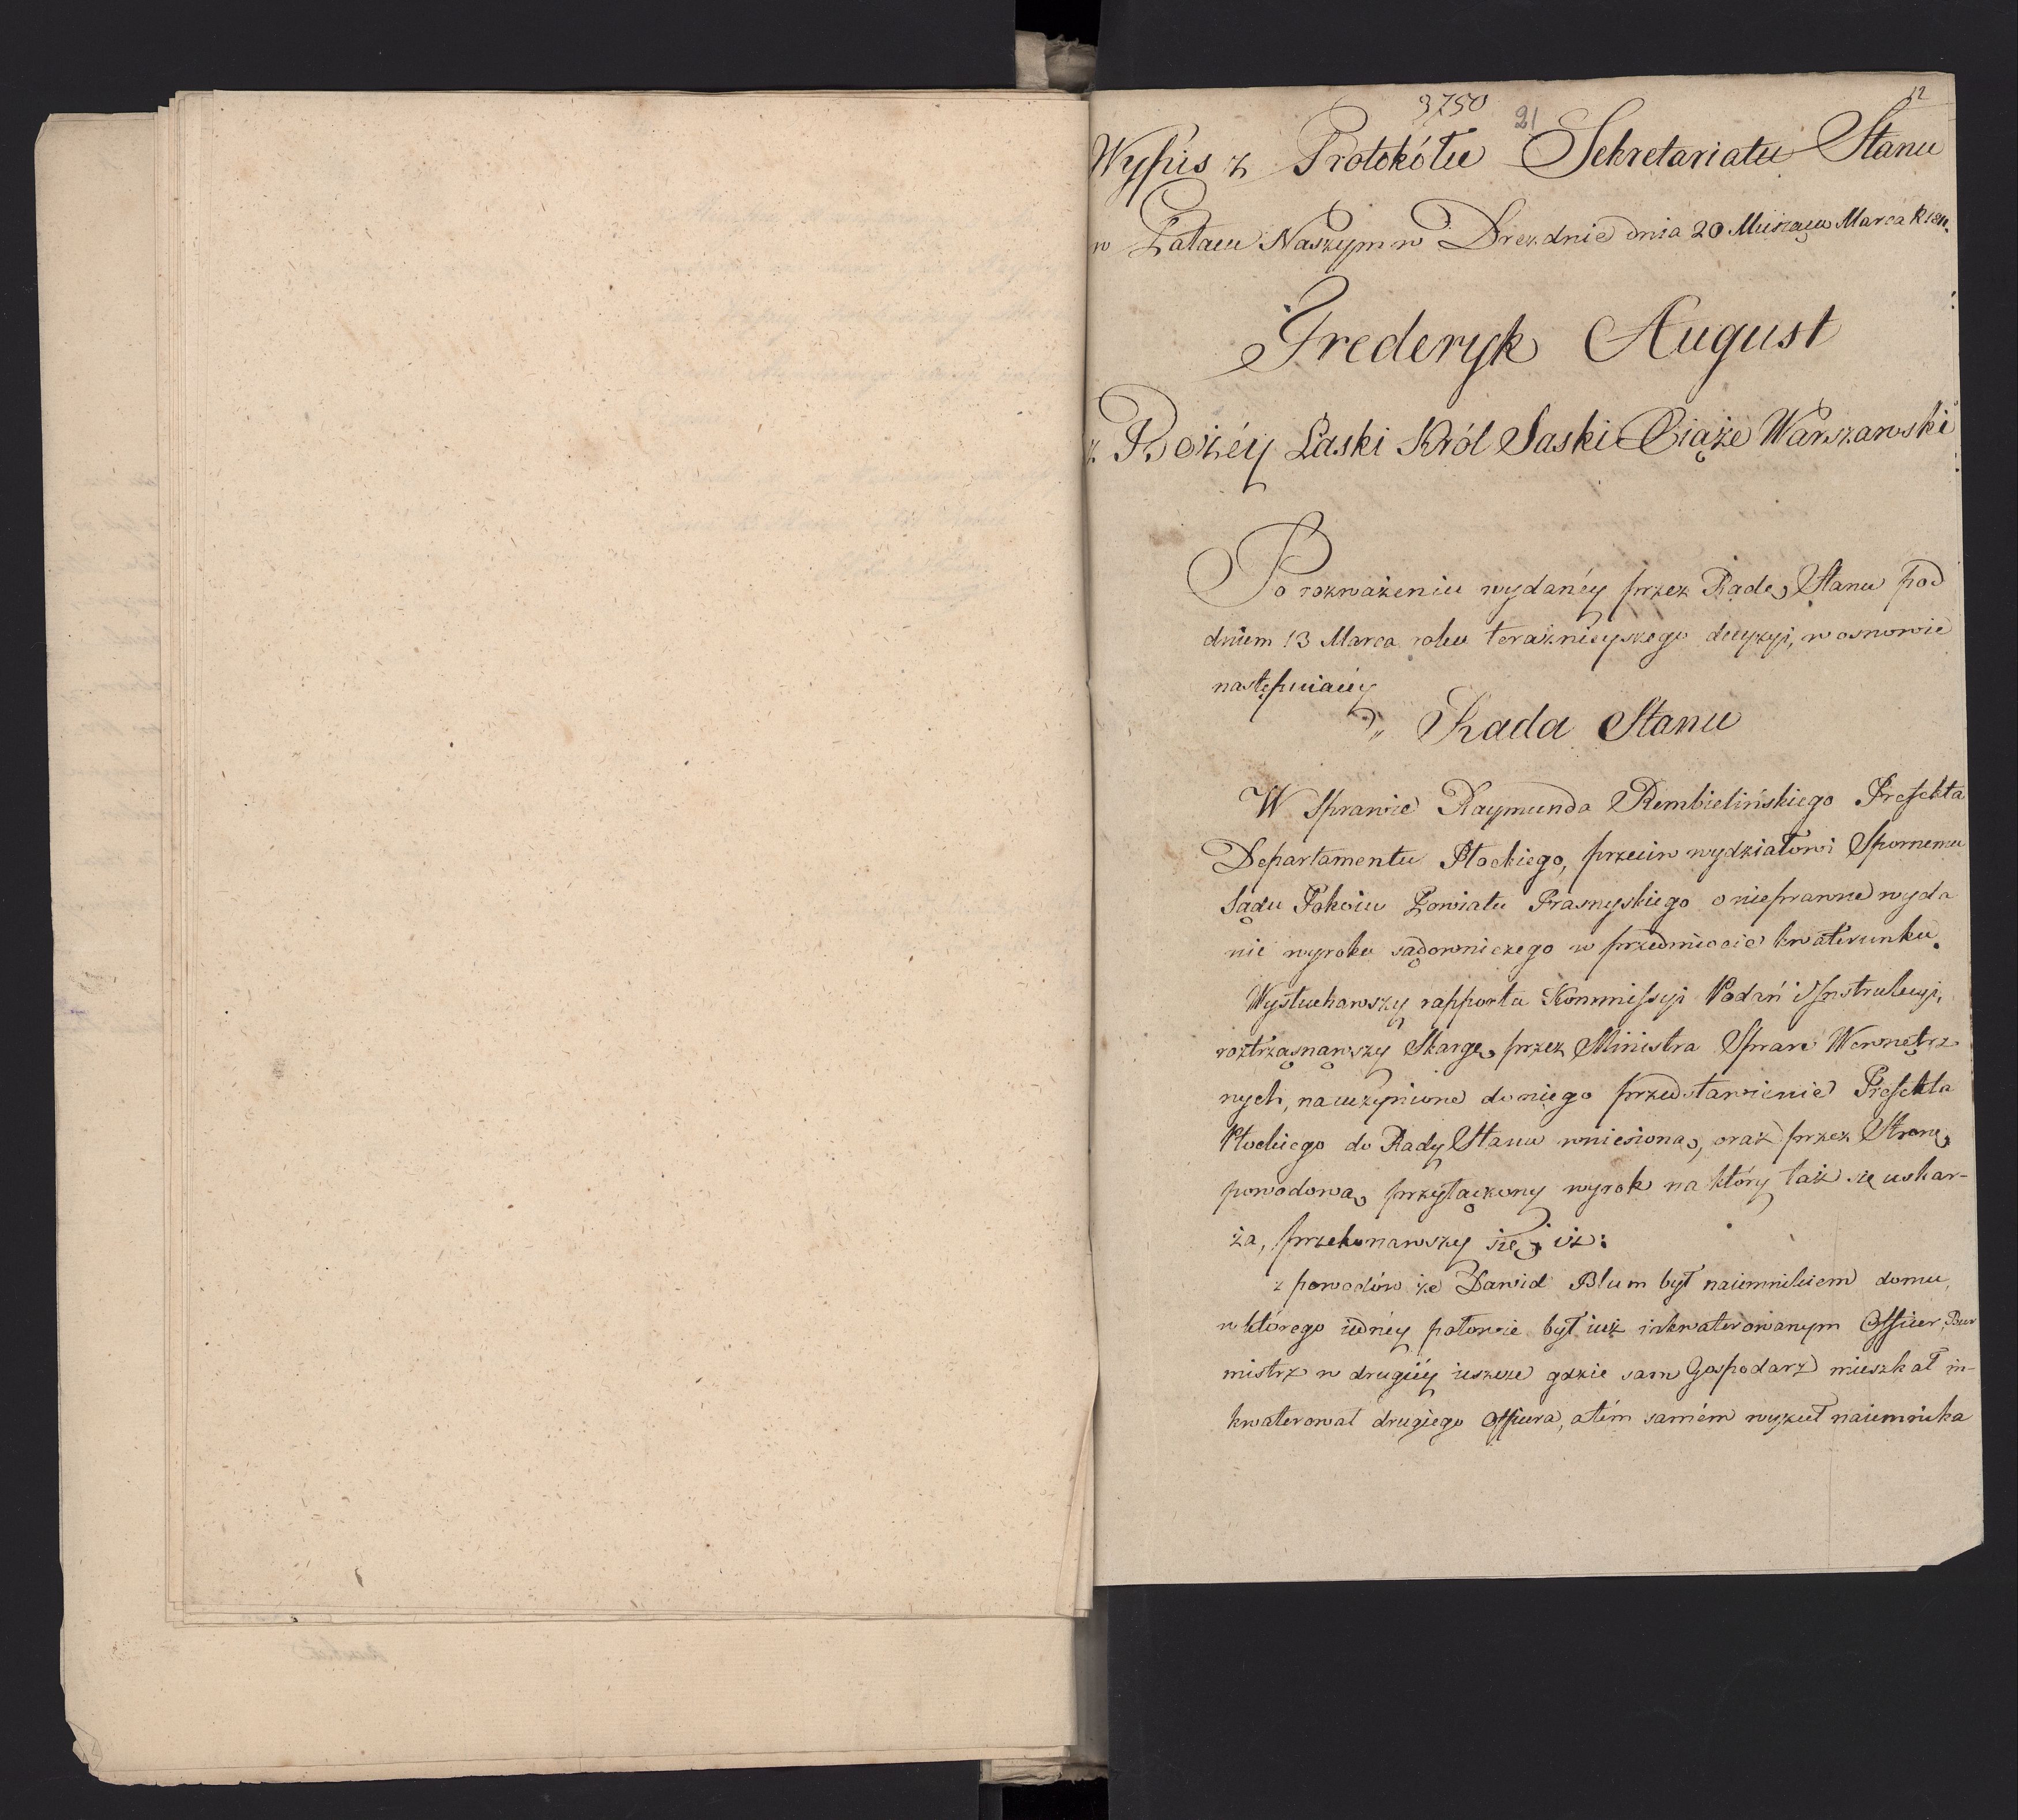 3750
21
12
Wypis z Protokółu Sekretariatu Stanu
w Pałacu Naszym w Dreźdnie dnia 20 Miesiąca Marca R 1811.
Frederyk August
z Bożéy Łaski Król Saski Xiąże Warszawski
Po rozważeniu wydanéy przez Radę Stanu pod
dniem 13 Marca roku teraźnieyszego decyzyi, w osnowie
następuiącéy
„ Rada Stanu
W Sprawie Raymunda Rembielińskiego Prefekta
Departamentu Płockiego, przeciw wydziałowi Spornemu
Sądu Pokoiu Powiatu Prasnyskiego o nieprawne wyda
nie wyroku sądowniczego w przedmiocie kwaterunku.
Wysłuchawszy rapportu Kommissyi Podań i Instrukcyi,
roztrząsnąwszy Skargę przez Ministra Spraw Wewnętrz
nych, na uczynione do niego przedstawienie Prefekta
Płockiego do Rady Stanu wniesioną, oraz przez Stronę
powodową przyłączony wyrok na który taż się uskar-
ża, przekonawszy się, iż:
z powodów że Dawid Blum był naiemnikiem domu,
w którego iednéy połowie był iuż inkwaterowanym Officer, Bur
mistrz w drugiéy ieszcze gdzie sam Gospodarz mieszkał in-
kwaterował drugiego Officera, a tém samém wyzuł naiemnika